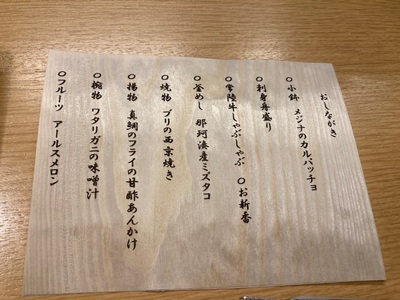 おしながき
○小鉢 メジナのカルパッチョ
○刺身舟盛り
○常陸牛しゃぶしゃぶ ○お新香
○釜めし 那珂湊産ミズタコ
○焼物 ブリの西京焼き
○揚物 真鯛のフライの甘酢あんかけ
○椀物 ワタリガニの味噌汁
○フルーツ アールスメロン